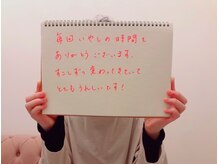 毎回いやしの時間を
ありがとうございます。
すこしずつ変わってきていて
とてもうれしいです!